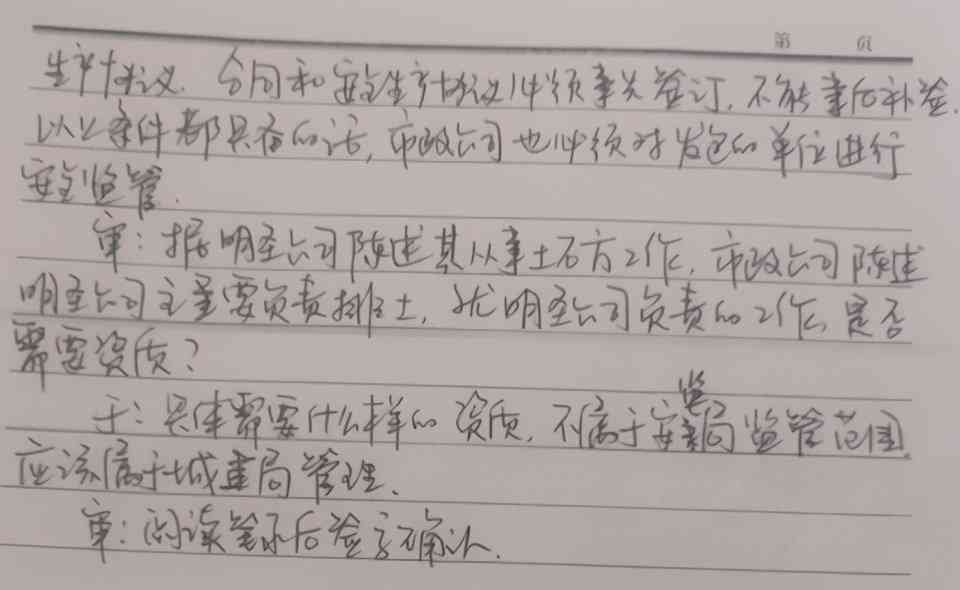 第 页
生产协议。合同和安全生产协议必须事先签订,不能事后补签.
以上条件都具备的话,市政公司也必须对发包的单位进行
安全监管.
审:据明圣公司陈述其从事土石方工作,市政公司陈述
明圣公司主要负责排土,就明圣公司负责的工作,是否
需要资质?
于:具体需要什么样的资质,不属于安监局监管范围,
应该属于城建局管理.
审:阅读笔录后签字确认.